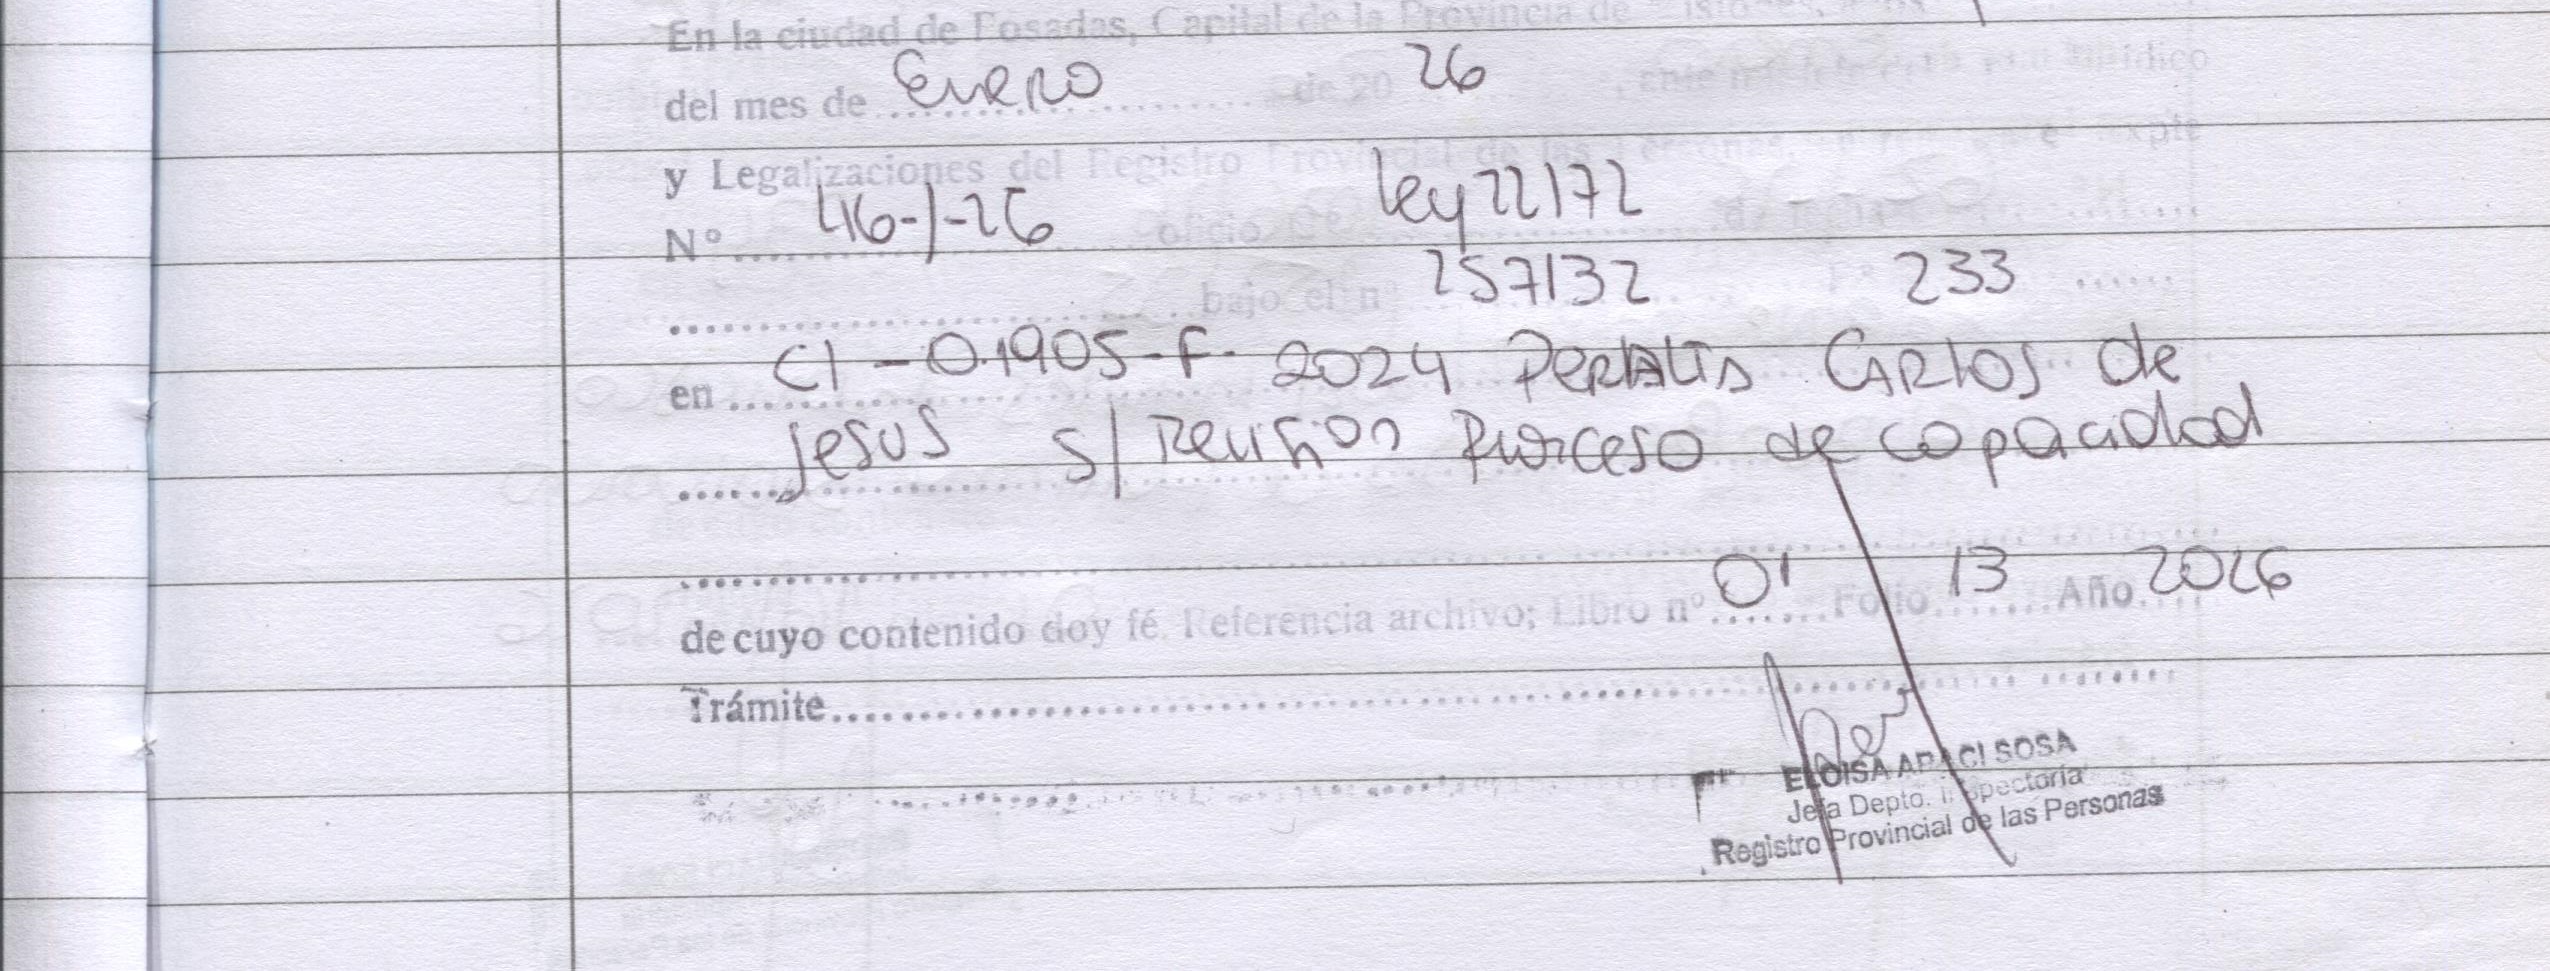 En la ciudad de Posadas, Capital de la Provincia de Misiones, a los
del mes de Enero de 20 26, ante mi Jefe Jurídico
y Legalizaciones del Registro Provincial de las Personas, Expte
N° 416-J-26 oficio ley 22172 de fecha
bajo el n° 257132 F° 233
en CI-01905-F-2024 Peralta Carlos de
Jesus s/ Revision Proceso de capacidad
de cuyo contenido doy fé. Referencia archivo; Libro n° 01 Folio 13 Año 2026
Trámite
ELOISA ARACI SOSA
Jefa Depto. Inspectoría
Registro Provincial de las Personas